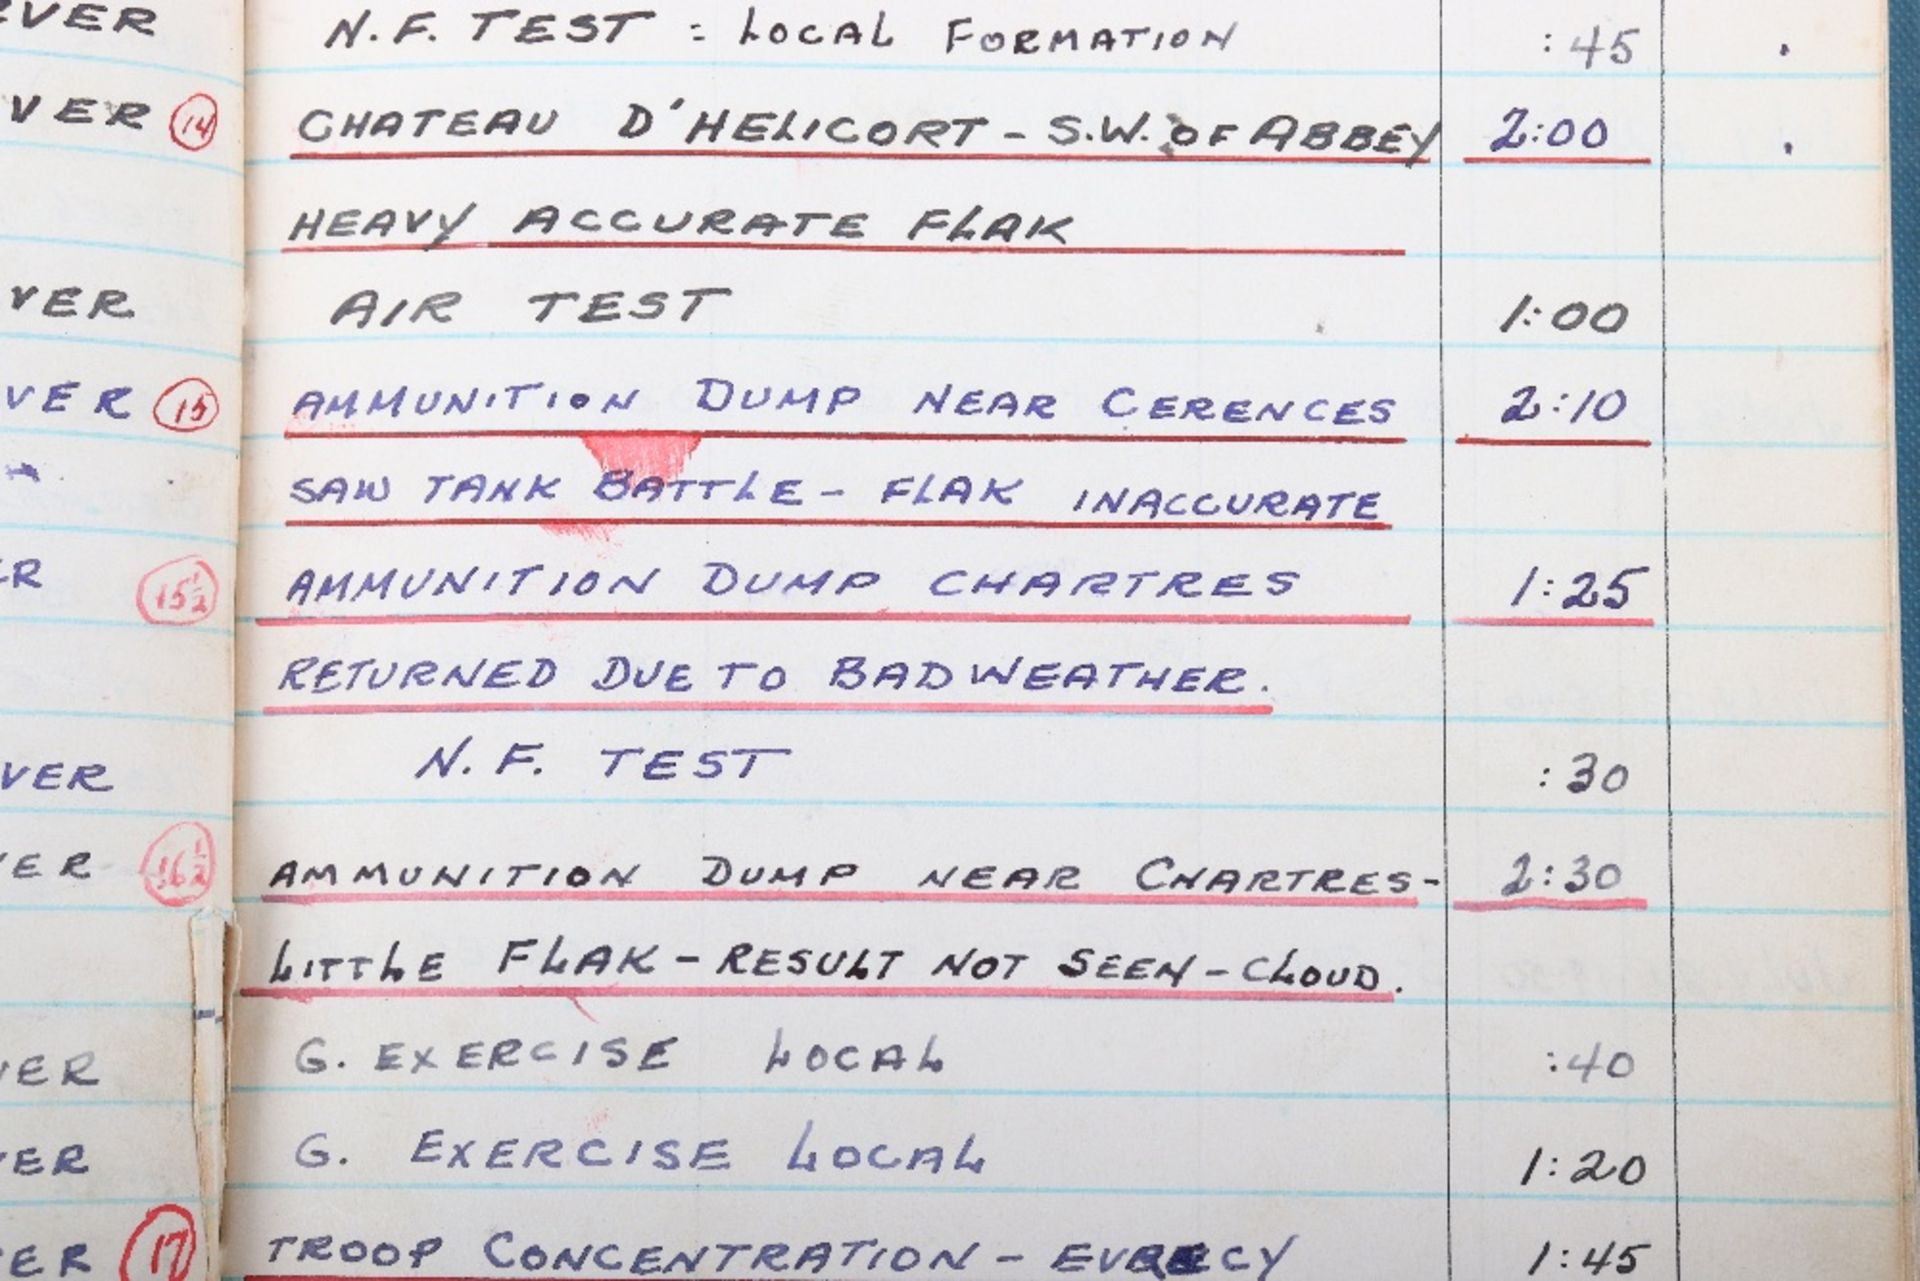 RVER N.F. TEST : LOCAL FORMATION :45
VER 14 CHATEAU D'HELICORT - S.W. OF ABBEY 2:00
HEAVY ACCURATE FLAK
VER AIR TEST 1:00
VER 15 AMMUNITION DUMP NEAR CERENCES 2:10
SAW TANK BATTLE - FLAK INACCURATE
ER 15½ AMMUNITION DUMP CHARTRES 1:25
RETURNED DUE TO BAD WEATHER.
VER N.F. TEST :30
VER 16½ AMMUNITION DUMP NEAR CHARTRES- 2:30
LITTLE FLAK - RESULT NOT SEEN - CLOUD.
VER G. EXERCISE LOCAL :40
VER G. EXERCISE LOCAL 1:20
VER 17 TROOP CONCENTRATION - 1:45